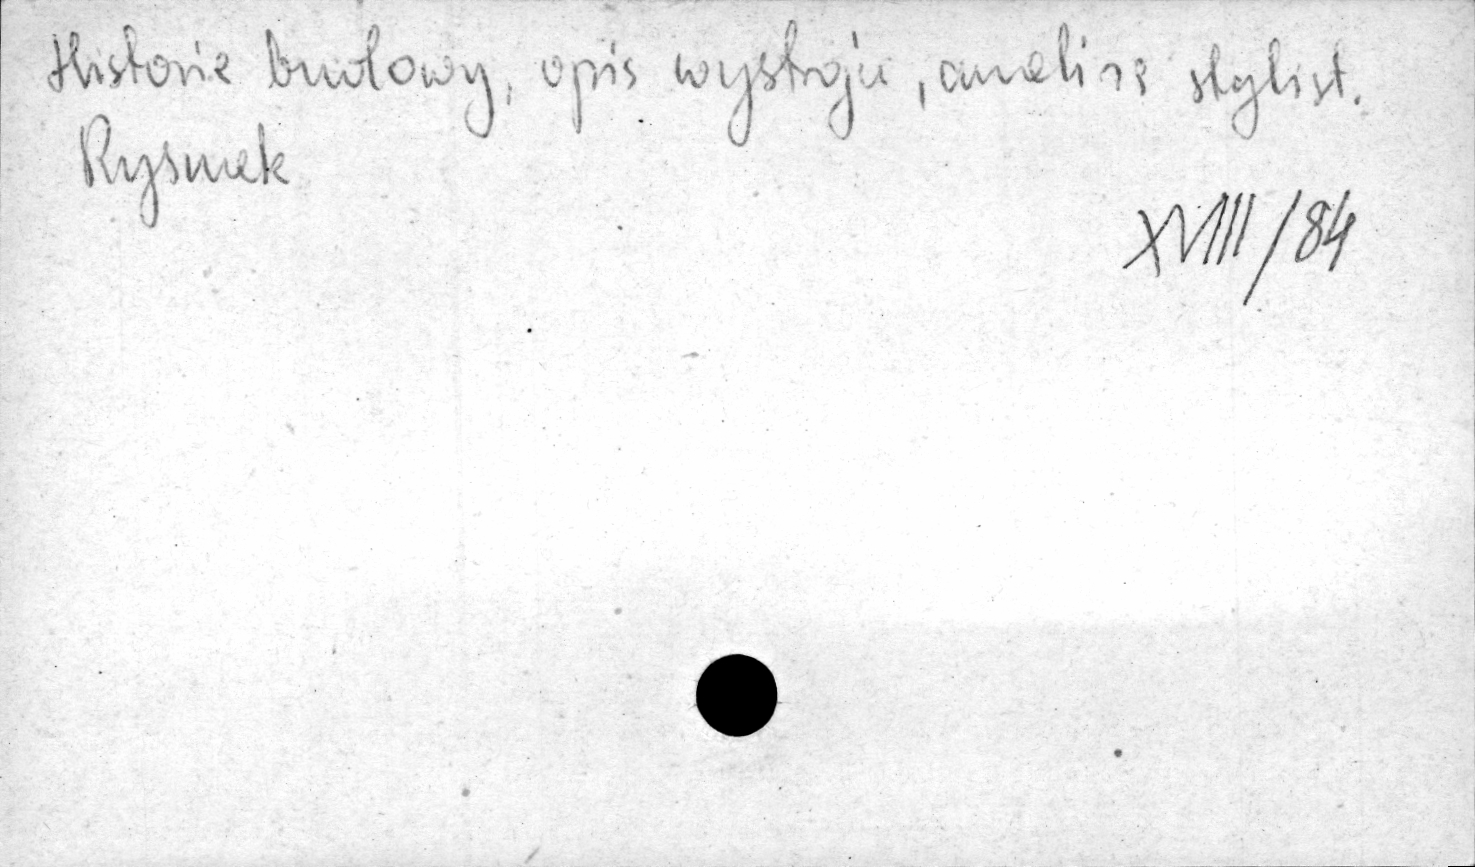 Historia budowy, opis wystroju, analiza stylist.
Rysunek
XVIII/84